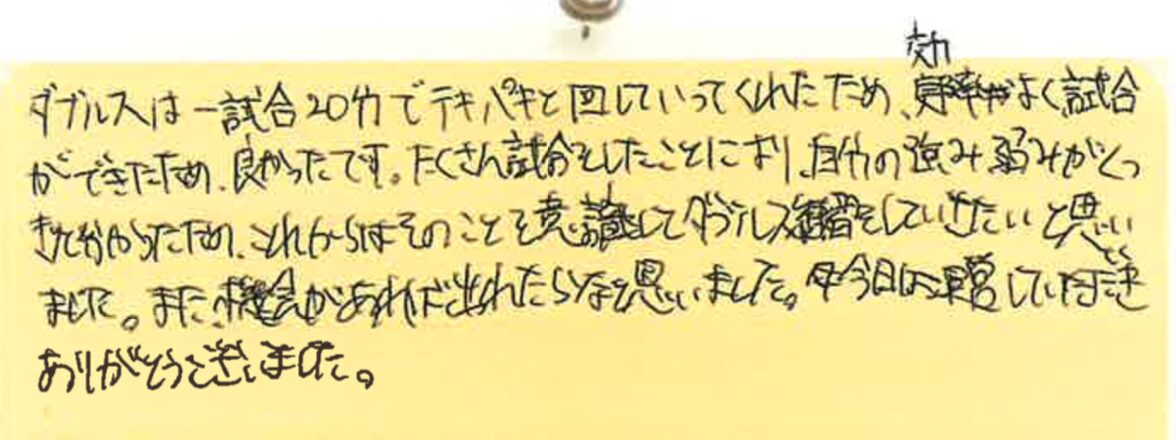 ダブルスは一試合20分でテキパキと回していってくれたため、効率がよく試合
ができたため、良かったです。たくさん試合をしたことにより、自分の強み弱みがくっ
きり分かったため、これからはそのことを意識してダブルス練習をしていきたいと思い
ました。また、機会があれば出れたらなと思いました。今日は運営していただき
ありがとうございました。